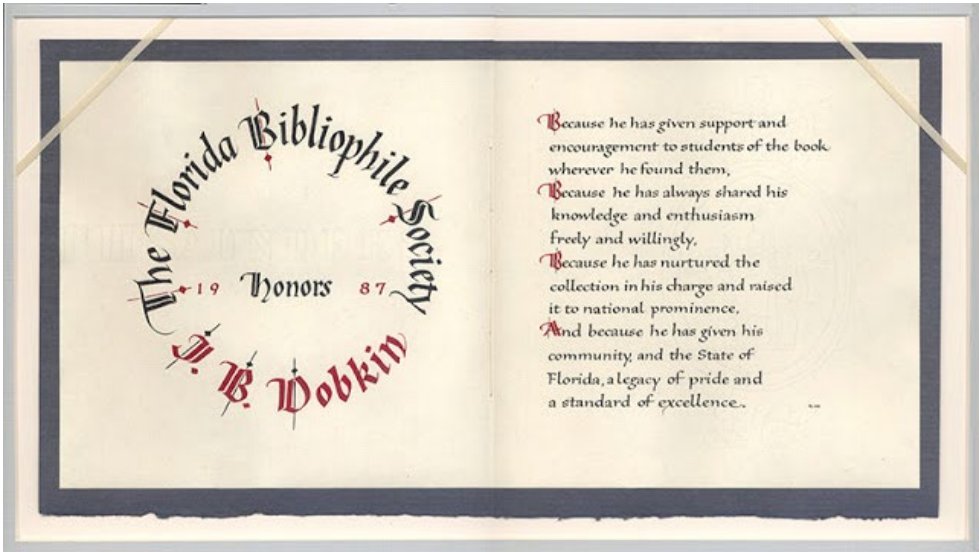 The Florida Bibliophile Society
19 Honors 87
J. B. Dobkin
Because he has given support and
encouragement to students of the book
wherever he found them,
Because he has always shared his
knowledge and enthusiasm
freely and willingly,
Because he has nurtured the
collection in his charge and raised
it to national prominence,
And because he has given his
community, and the State of
Florida, a legacy of pride and
a standard of excellence.